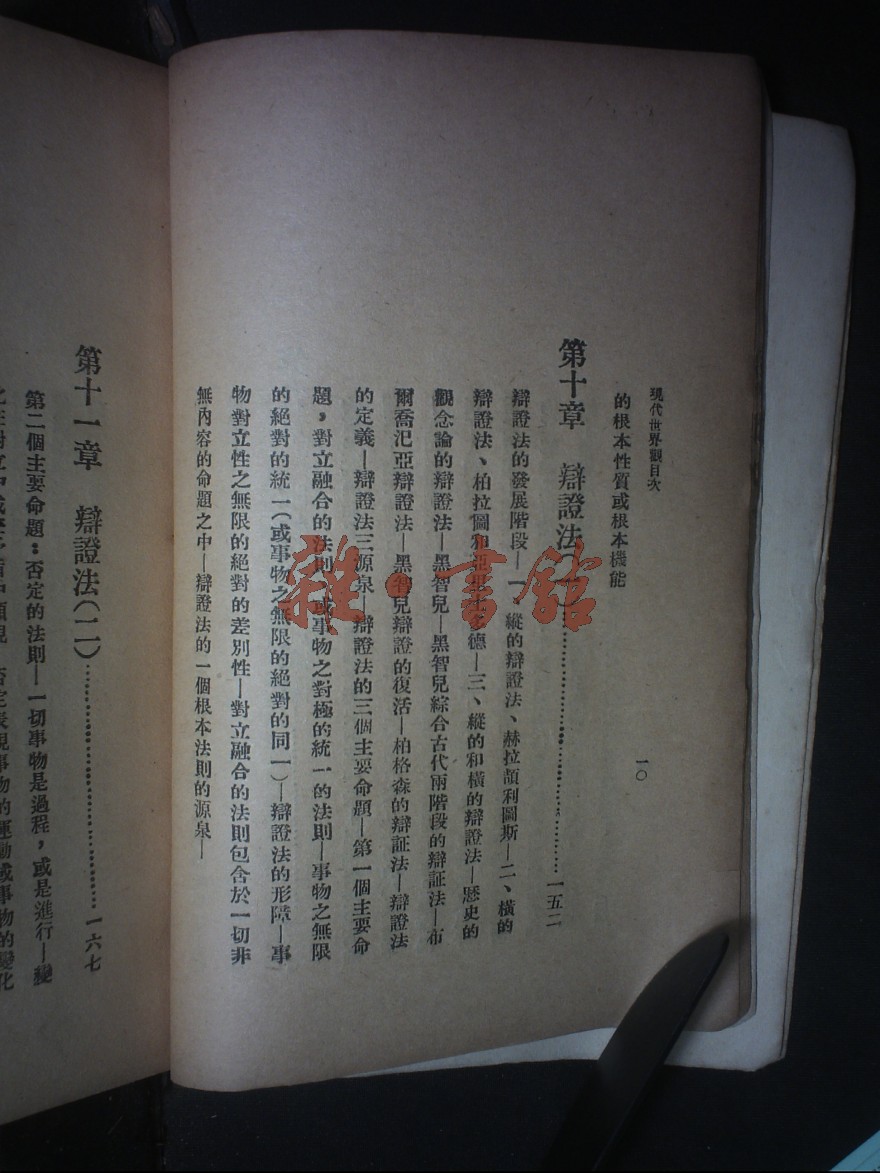 現代世界觀目次
一〇
的根本性質或根本機能
第十章　辯證法(一)……………………一五二
辯證法的發展階段—一、縱的辯證法、赫拉頡利圖斯—二、橫的
辯證法、柏拉圖和亞里士多德—三、縱的和橫的辯證法—歷史的
觀念論的辯證法—黑智兒—黑智兒綜合古代兩階段的辯証法—布
爾喬汜亞辯證法—黑智兒辯證的復活—柏格森的辯証法—辯證法
的定義—辯證法三源泉—辯證法的三個主要命題—第一個主要命
題，對立融合的法則，或事物之對極的統一的法則—事物之無限
的絕對的統一(或事物之無限的絕對的同一)—辯證法的形障—事
物對立性之無限的絕對的差別性—對立融合的法則包含於一切非
無內容的命題之中—辯證法的一個根本法則的源泉—
第十一章　辯證法(二)……………………一六七
第二個主要命題：否定的法則—一切事物是過程，或是進行—變
否定表現事物的運動或事物的變化
雜·書館